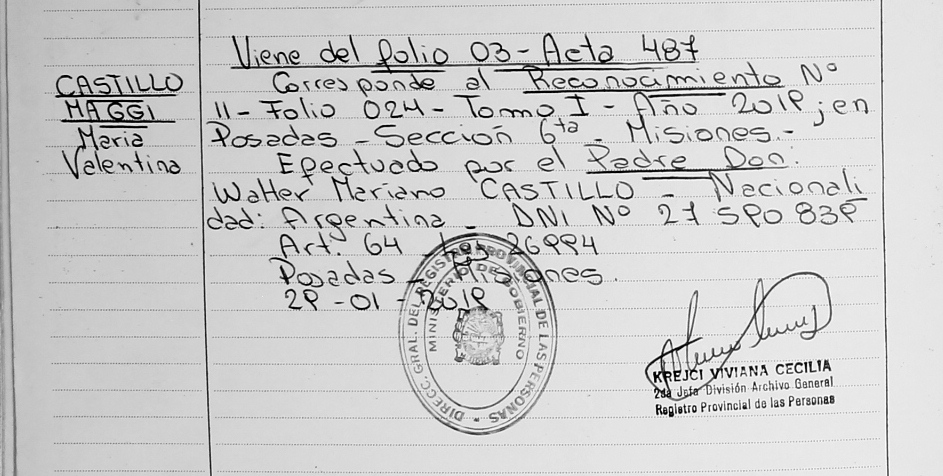 Viene del folio 03 - Acta 487
CASTILLO
MAGGI
Maria
Valentina
Corresponde al Reconocimiento N°
11 - Folio 024 - Tomo I - Año 2019; en
Posadas - Sección 6ta - Misiones.-
Efectuado por el Padre Don:
Walter Mariano CASTILLO - Nacionali
dad: Argentina - DNI N° 27 590 839
Art. 64 - Ley 26994
Posadas - Misiones.
29-01-2019
DIRECC. GRAL. DEL REGISTRO PROVINCIAL DE LAS PERSONAS
MINISTERIO DE GOBIERNO
KREJCI VIVIANA CECILIA
2da Jefa División Archivo General
Registro Provincial de las Personas